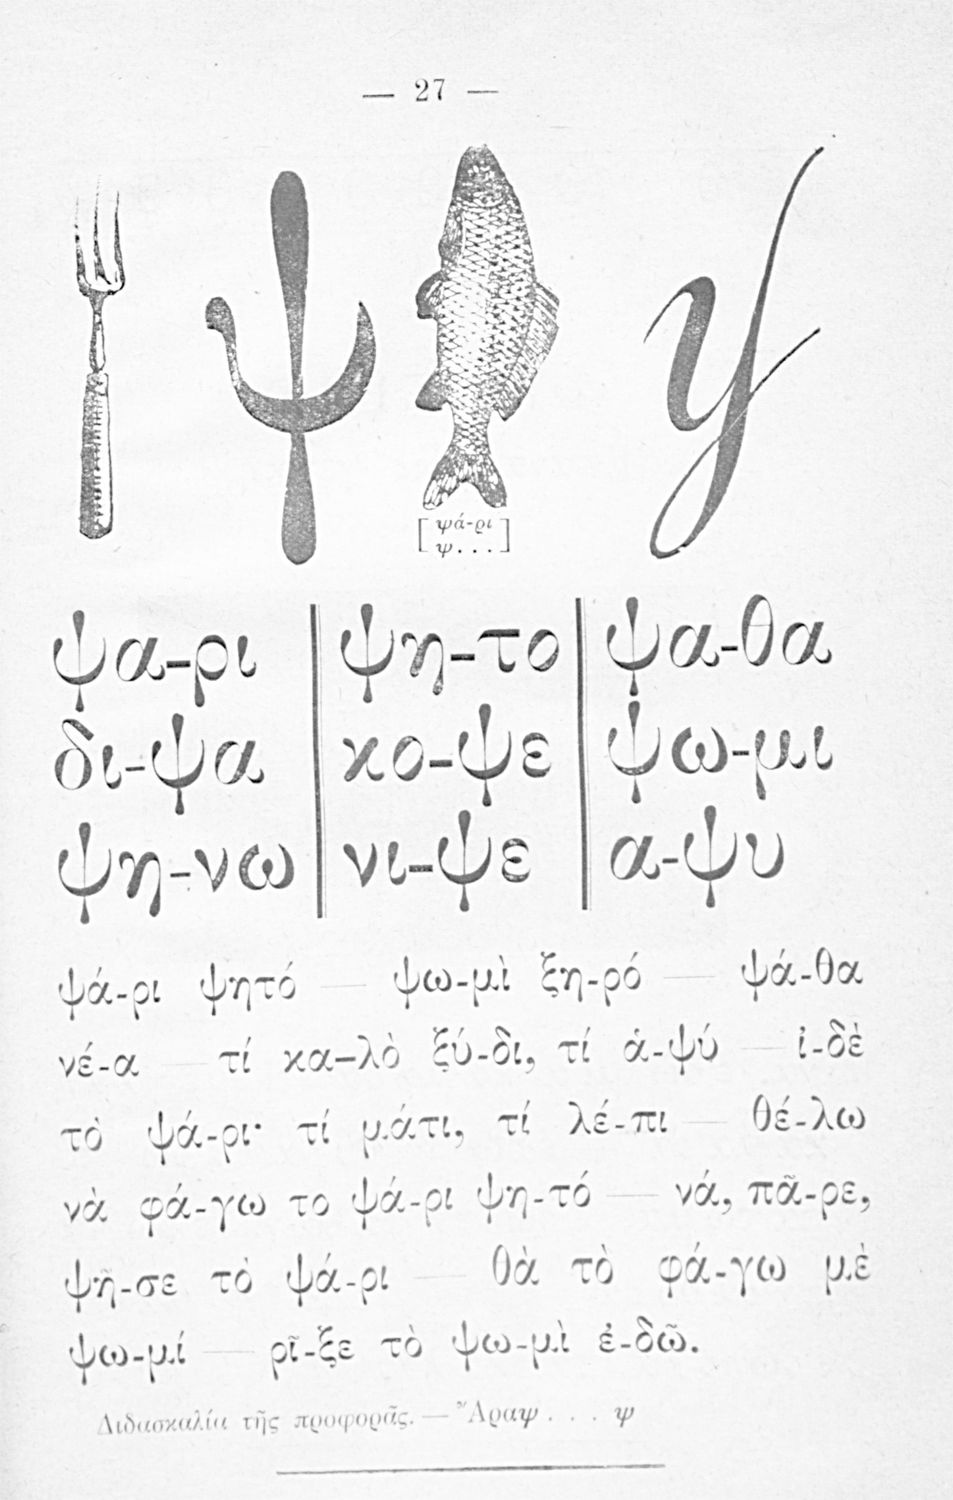 — 27 —
ψ ψ
[ψά-ρι
ψ...]
ψα-ρι ψη-το ψα-θα
δι-ψα κο-ψε ψω-μι
ψη-νω νι-ψε α-ψυ
ψά-ρι ψητό — ψω-μὶ ξη-ρό — ψά-θα
νέ-α — τί κα-λὸ ξύ-δι, τί ἁ-ψύ — ἰ-δὲ
τὸ ψά-ρι· τί μάτι, τί λέ-πι — θέ-λω
νὰ φά-γω το ψά-ρι ψη-τό — νά, πᾶ-ρε,
ψῆ-σε τὸ ψά-ρι — θὰ τὸ φά-γω μὲ
ψω-μί — ρῖ-ξε τὸ ψω-μὶ ἐ-δῶ.
Διδασκαλία τῆς προφορᾶς. — Ἄραψ . . . ψ